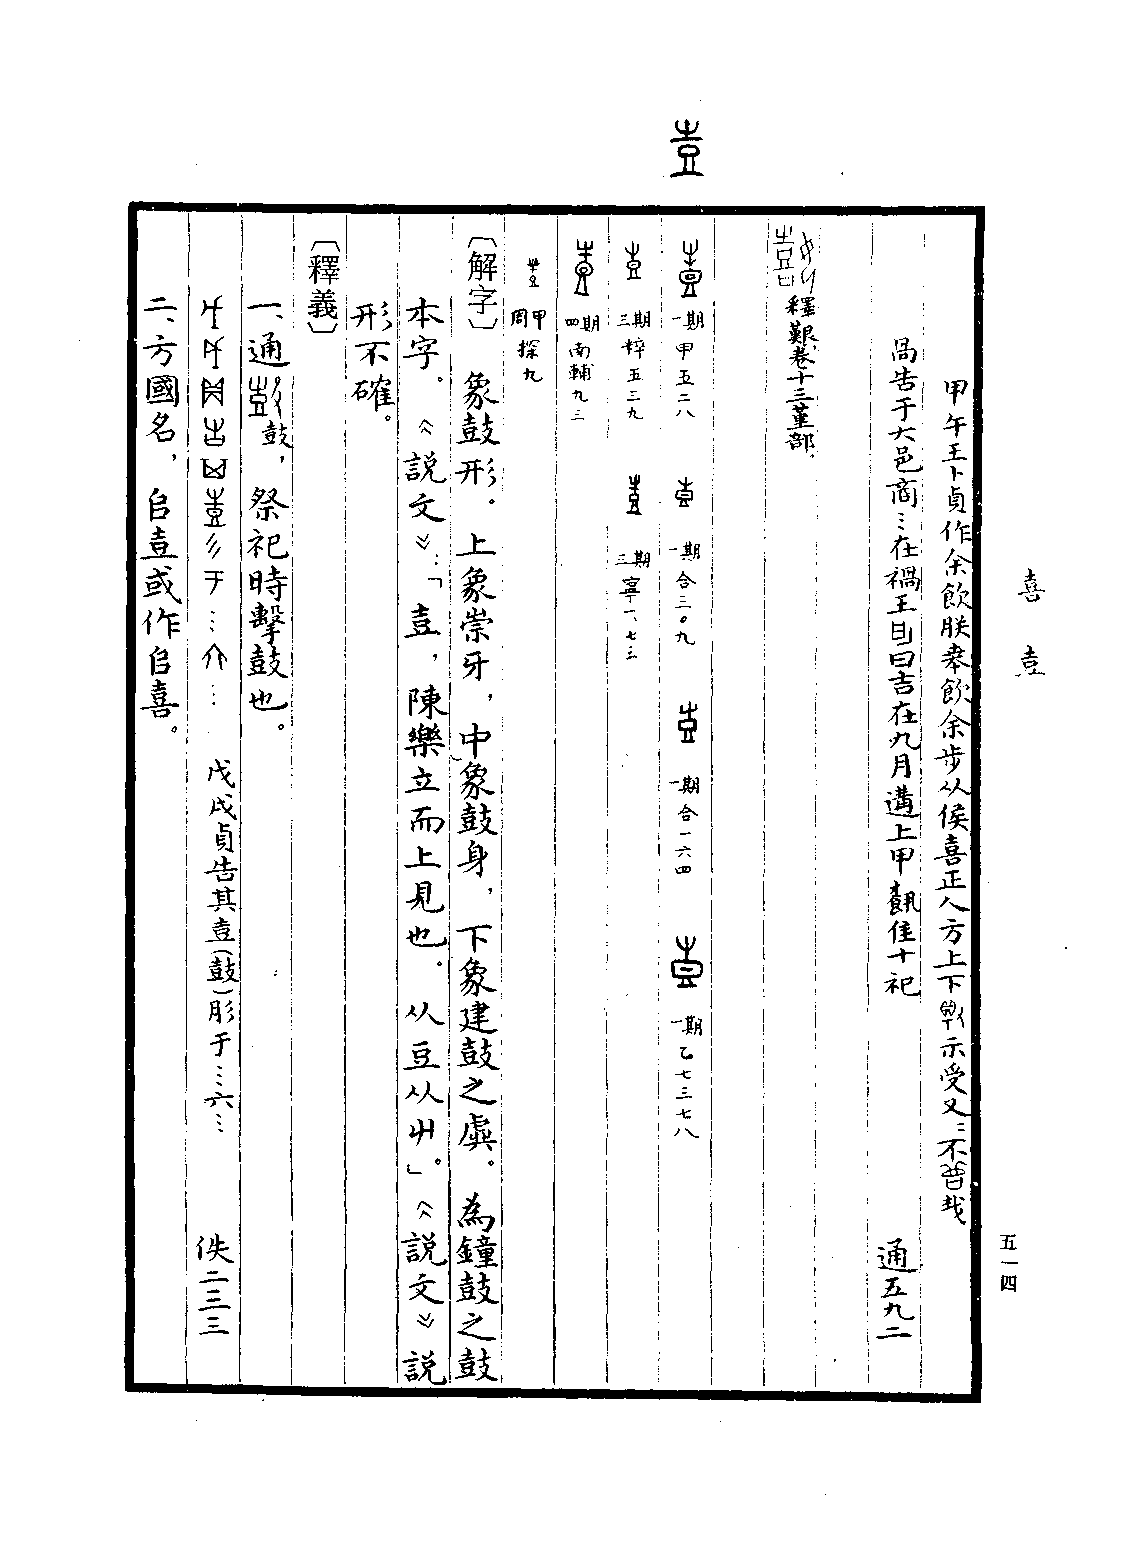 喜 壴
五一四
甲午王卜貞作余飲朕𠦪飲余步从侯喜正人方上下示受又=不曾𢦏
吿于大邑商…在禍王曰吉在九月遘上甲隹十祀
通五九二
釋艱卷十三堇部。
壴
一期甲五二八 一期合三〇九 一期合一六四 一期乙七三七八
三期粹五三九 三期寧一、七三
四期南輔九三
周甲探九
〔解字〕 象鼓形。上象崇牙，中象鼓身，下象建鼓之虡。為鐘鼓之鼓
本字。《說文》：「壴，陳樂立而上見也。从豆从屮」。《說文》說
形不確。
〔釋義〕
一、通鼓，祭祀時擊鼓也。
戊戌貞告其壴（鼓）肜于…六… 佚二三三
二、方國名，㠯壴或作㠯喜。